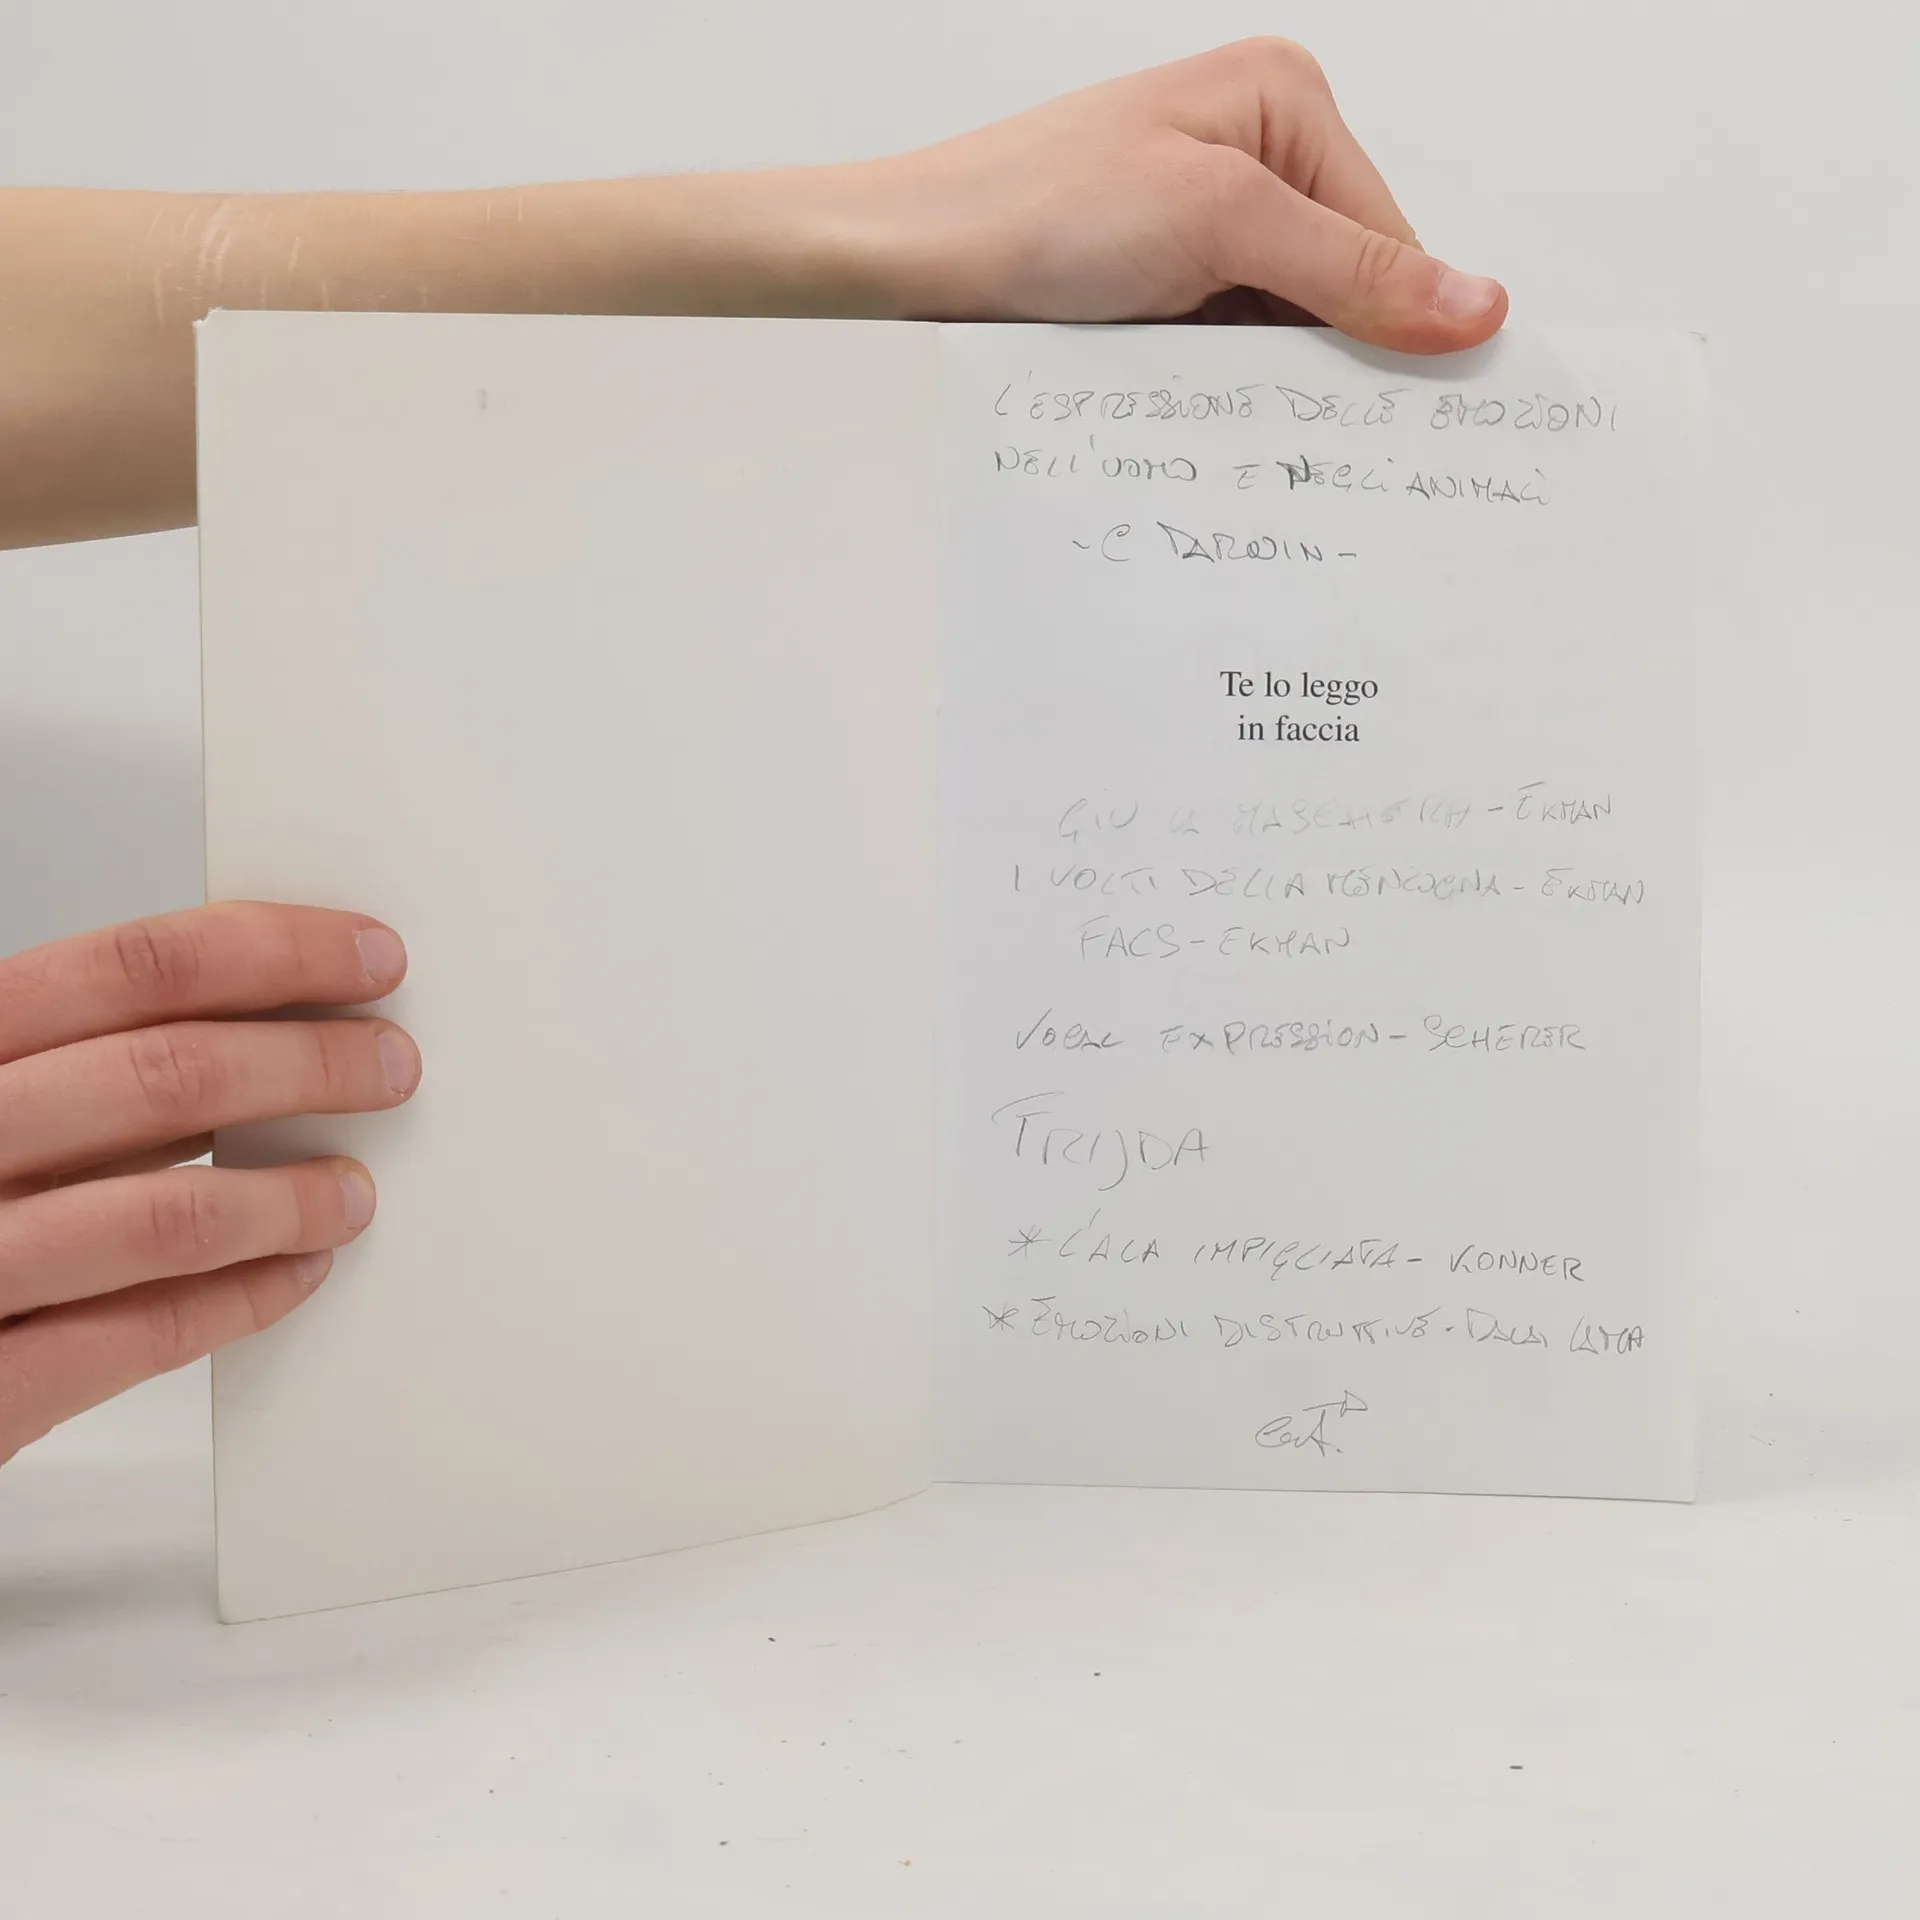 L'ESPRESSIONE DELLE EMOZIONI
NELL'UOMO E NEGLI ANIMALI
- C DARWIN -
Te lo leggo
in faccia
GIU LA MASCHERA - EKMAN
I VOLTI DELLA MENZOGNA - EKMAN
FACS - EKMAN
VOCAL EXPRESSION - SCHERER
FRIJDA
* L'ALA IMPIGLIATA - KONNER
* EMOZIONI DISTRUTTIVE - DALAI LAMA